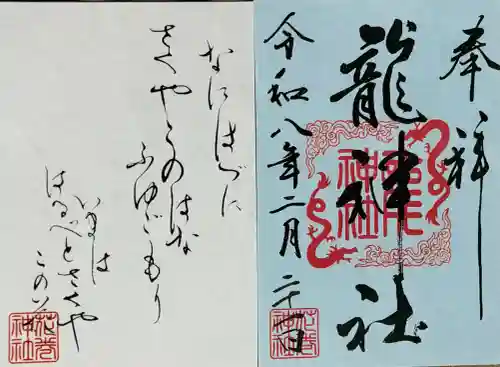 奉拝
龍神社
令和八年二月二十
日
なにはづに
さくやこのはな
ふゆごもり
いまは
はるべとさくや
この
神社
花巻
神社